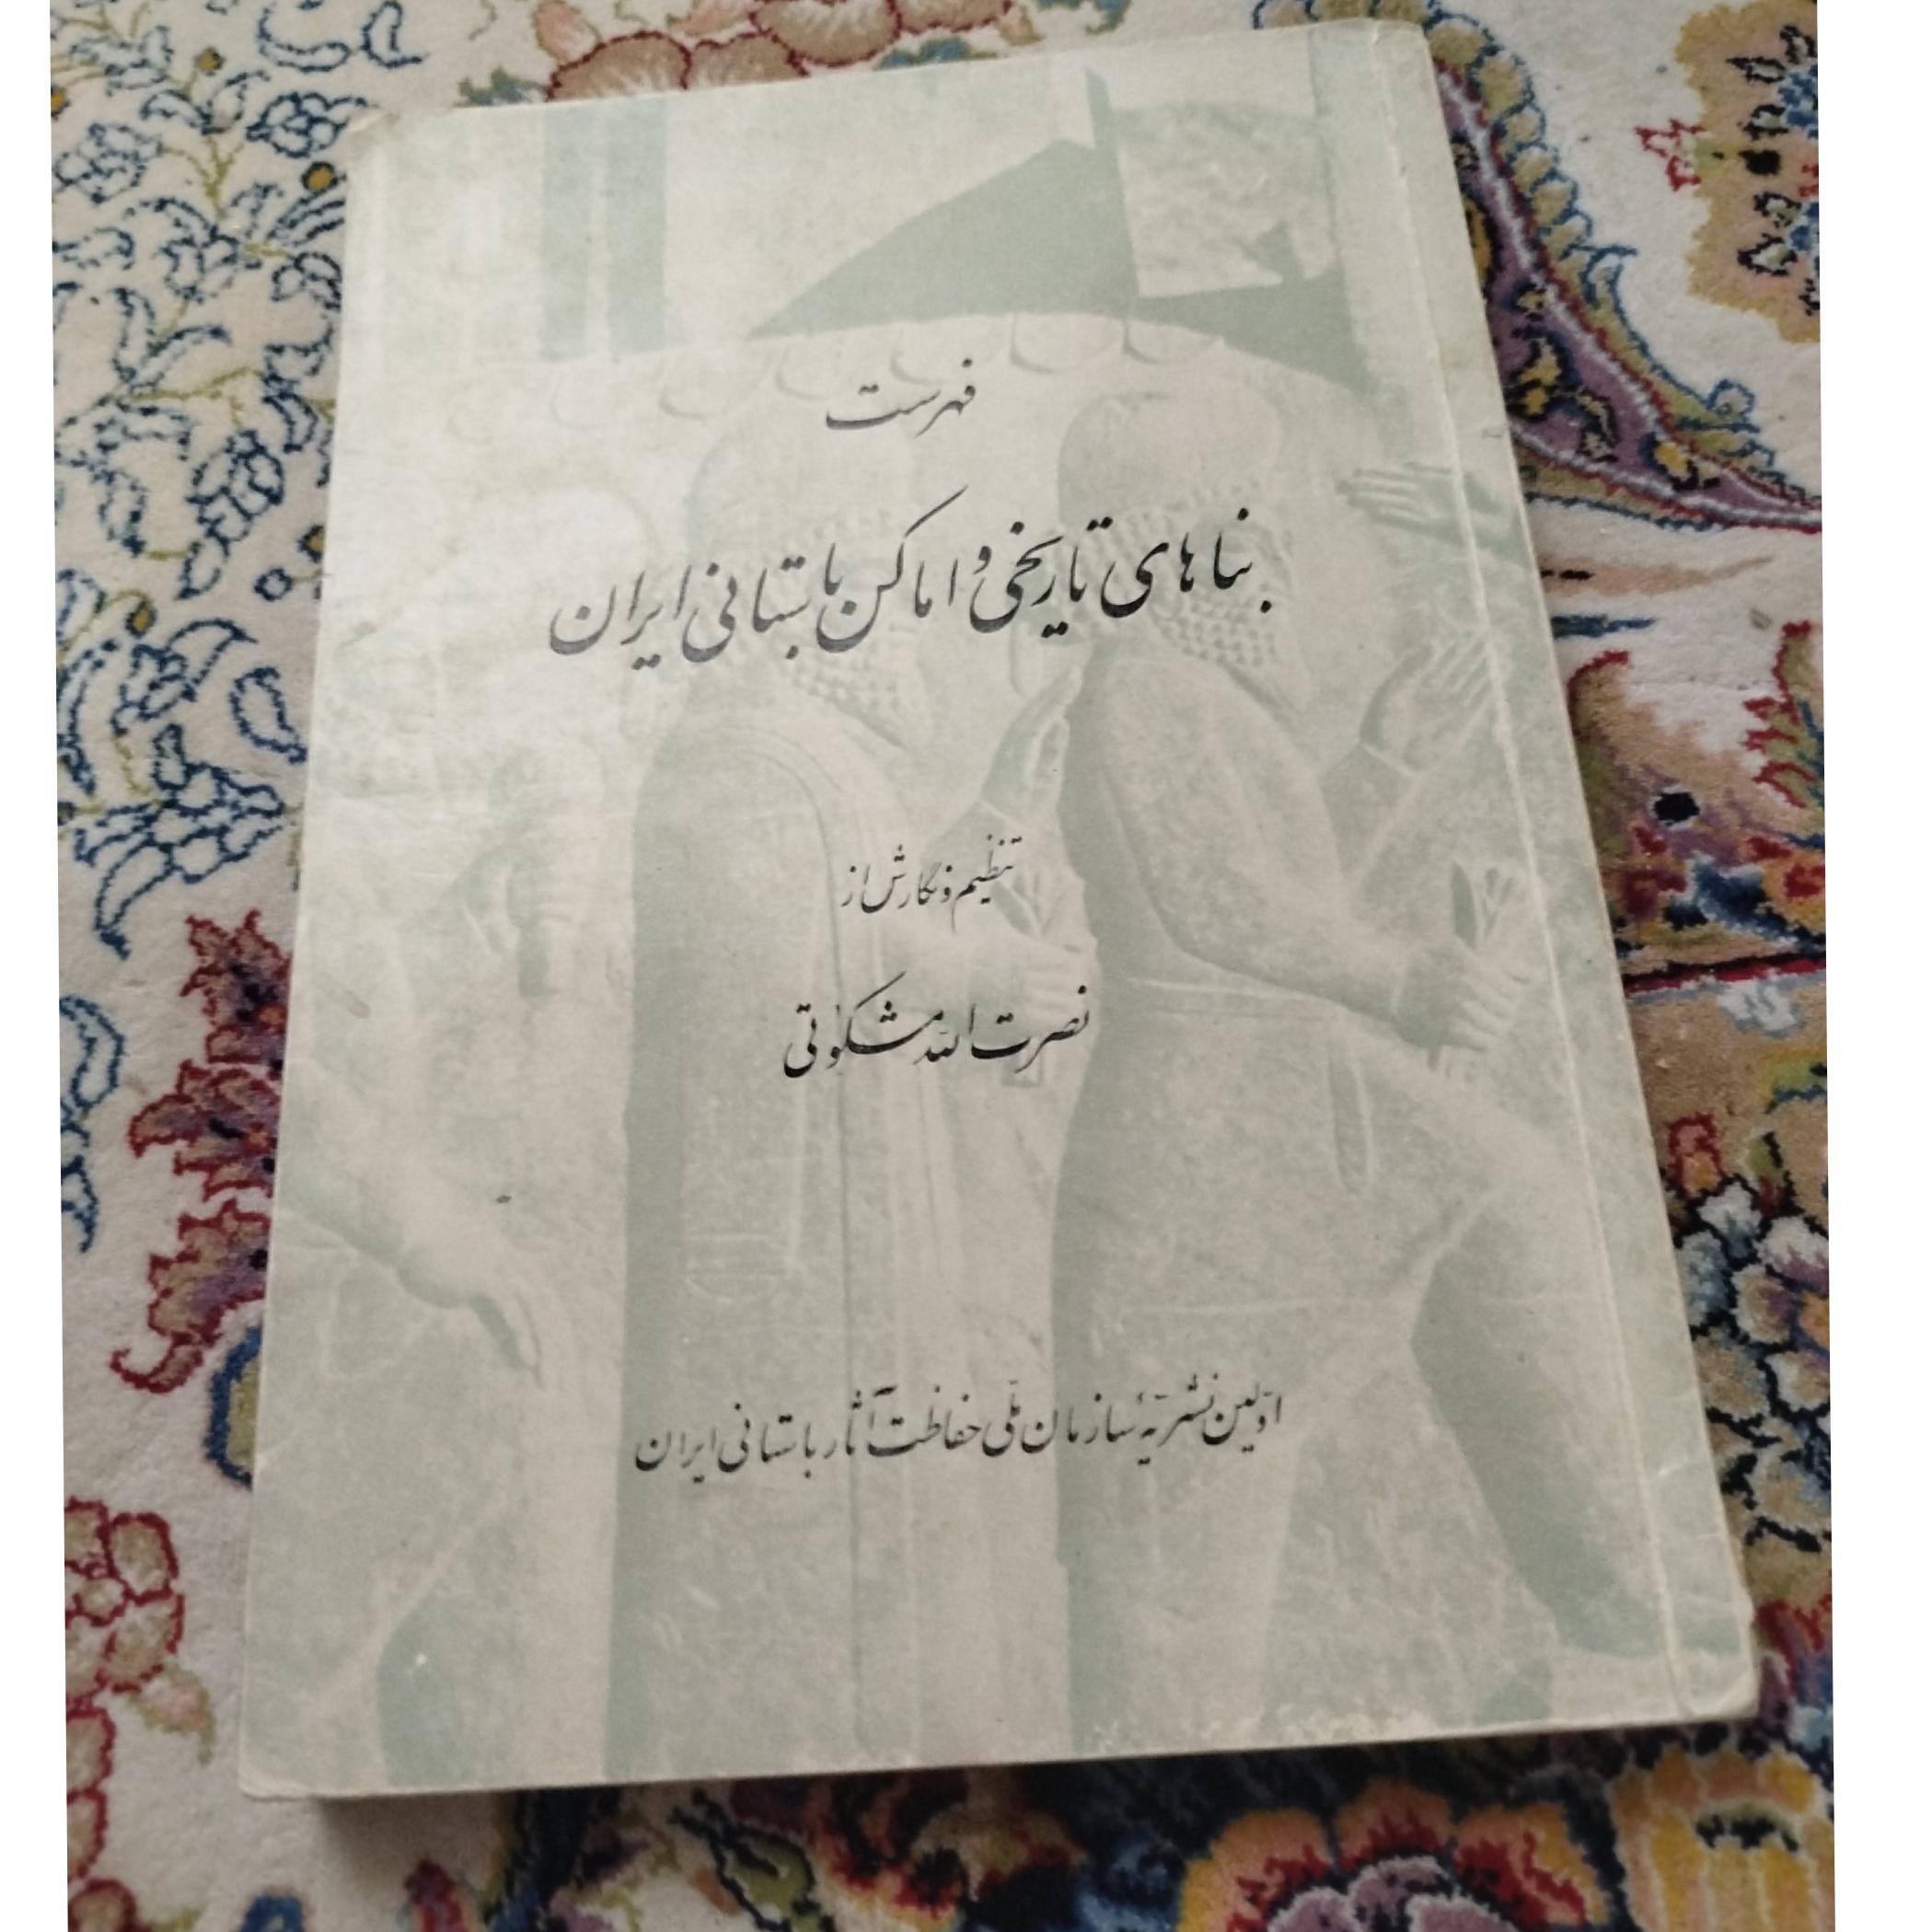 فهرست
بناهای تاریخی و اماکن باستانی ایران
تنظیم و نگارش از
نصرت الله مشکوتی
اولین نشریهٔ سازمان ملّی حفاظت آثار باستانی ایران